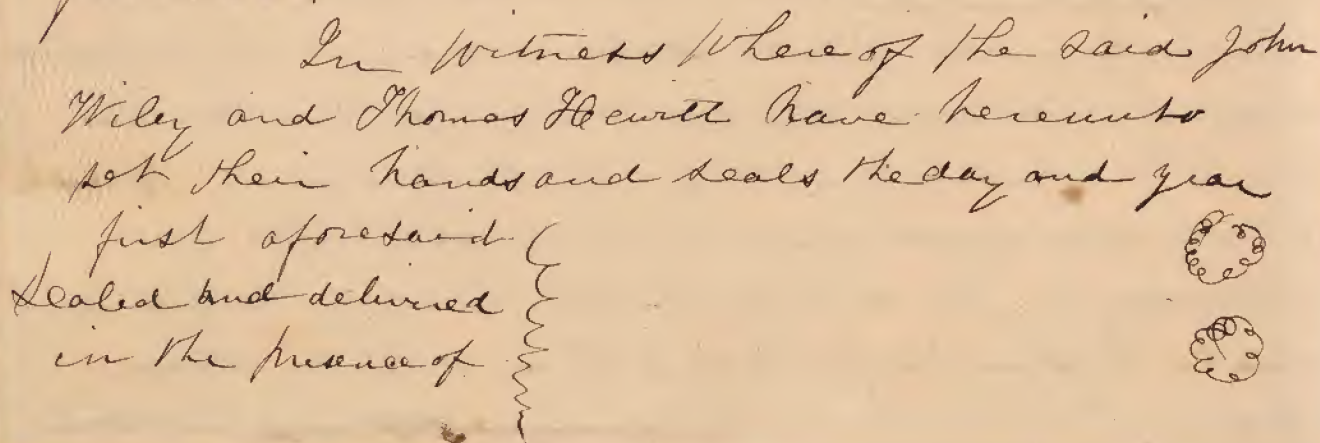 In Witness Whereof the said John
Wiley and Thomas Hewitt have hereunto
set their hands and seals the day and year
first aforesaid
Sealed and delivered
in the presence of